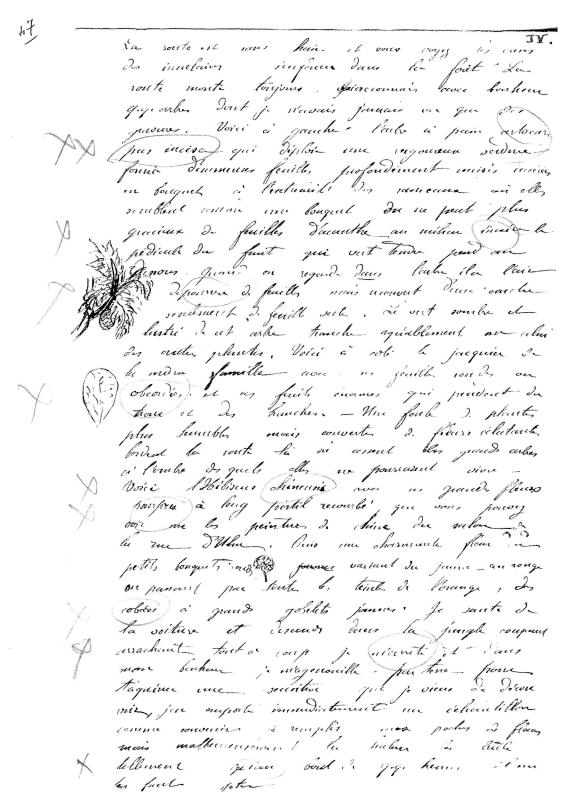 47
IV.
La route est sans haie et vous voyez les cases
des insulaires dans la forêt. La
route monte toujours. avec bonheur
qques arbres dont je n'avais jamais vu que des
gravures. Voici à gauche l'arbre à pain artocar
pus incisa qui déploie une vigoureuse verdure
fournie d'immenses feuilles profondément incisées
en bouquets à l'extrémité des rameaux où elles
semblent comme une bouquet on ne peut plus
gracieux de feuilles d'acanthe au milieu le
pédicule du fruit qui vert tendre pend au
quand on regarde dans l'arbre il a l'air
dépourvu de feuilles mais recouvert d'une couche
de feuille sèche. Le vert sombre et
lustré de cet arbre tranche agréablement sur celui
des autres plantes. Voici à côté le jacquier de
la même famille avec ses feuilles rondes ou
obcordées et ses fruits énormes qui pendent du
tronc et des branches. — Une foule de plantes
plus humbles mais couvertes de fleurs éclatantes
bordent la route là où cessent les grands arbres
à l'ombre desquels elles ne pourraient vivre —
Voici l'Hibiscus chinensis avec ses grandes fleurs
pourpres à long pistil recourbé, que vous pouvez
voir sur les peintures de chine du salon de
la rue d'Ulm. Puis une charmante fleur en
petits bouquets variant du jaune au rouge
en passant par toutes les teintes de l'orange, des
à grands gobelets jaunes. Je saute de
la voiture et descends dans la jungle coupant
arrachant tout à coup je et dans
mon bonheur je m'agenouille par terre pour
taquiner une sensitive que je viens de décou
vrir, j'en emporte immédiatement un échantillon
comme souvenir à remplis mes poches de fleurs
mais malheureusement la nature
tellement bout de qques heures
les faut jeter